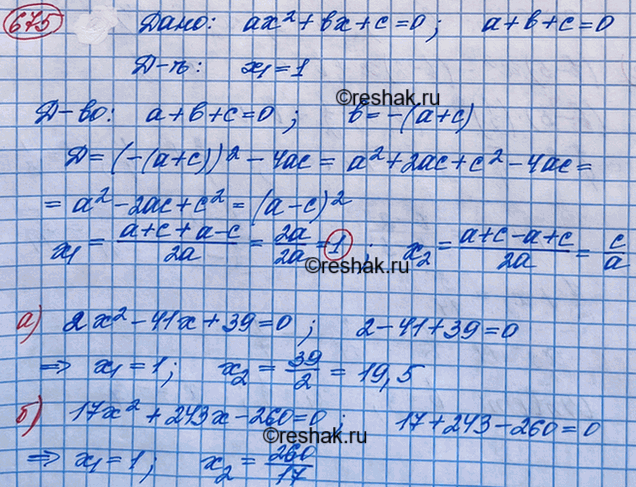 675 Дано: ax² + bx + c = 0; a + b + c = 0
Д-ть: x₁ = 1
©reshak.ru
Д-во: a + b + c = 0; b = -(a + c)
D = (-(a + c))² - 4ac = a² + 2ac + c² - 4ac =
= a² - 2ac + c² = (a - c)²
x₁ = (a + c + a - c)/2a = 2a/2a = 1; x₂ = (a + c - a + c)/2a = c/a
©reshak.ru ©reshak.ru
а) 2x² - 41x + 39 = 0; 2 - 41 + 39 = 0
⇒ x₁ = 1; x₂ = 39/2 = 19,5
б) 17x² + 243x - 260 = 0; 17 + 243 - 260 = 0
©reshak.ru
⇒ x₁ = 1; x₂ = 260/17